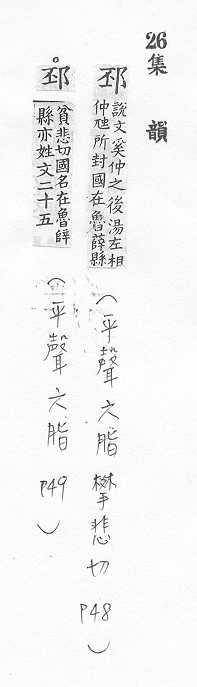 26集韻
邳 說文奚仲之後湯左相
仲虺所封國在魯薛縣
(平聲六脂 攀悲切 P48)
。邳 貧悲切國名在魯薛
縣亦姓文二十五
(平聲六脂 P49)